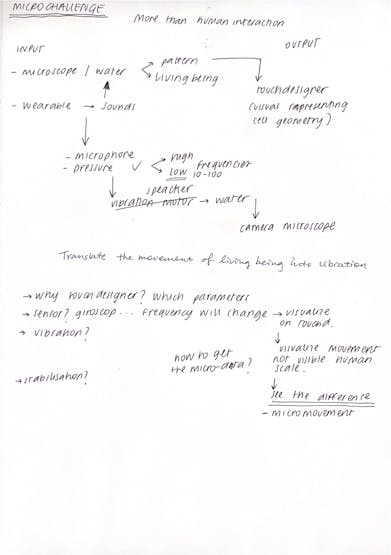 MICROCHALLENGE
More than human interaction
INPUT
OUTPUT
- microscope / water
pattern
living being
touchdesigner
(visual rapresenting
cell geometry)
- wearable → sounds
- microphone
- pressure ✓
high
low
frequencies
10-100
speacher
vibration motor → water
camera microscope
Translate the movement of living being into vibration
→ why touchdesigner? which parameters
→ sensor? giroscop... frequency will change → visualize
on touchd.
→ vibration?
visualize movement
not visible human
scale.
how to get
the micro-data?
→ stabilisation?
see the difference
- micromovement